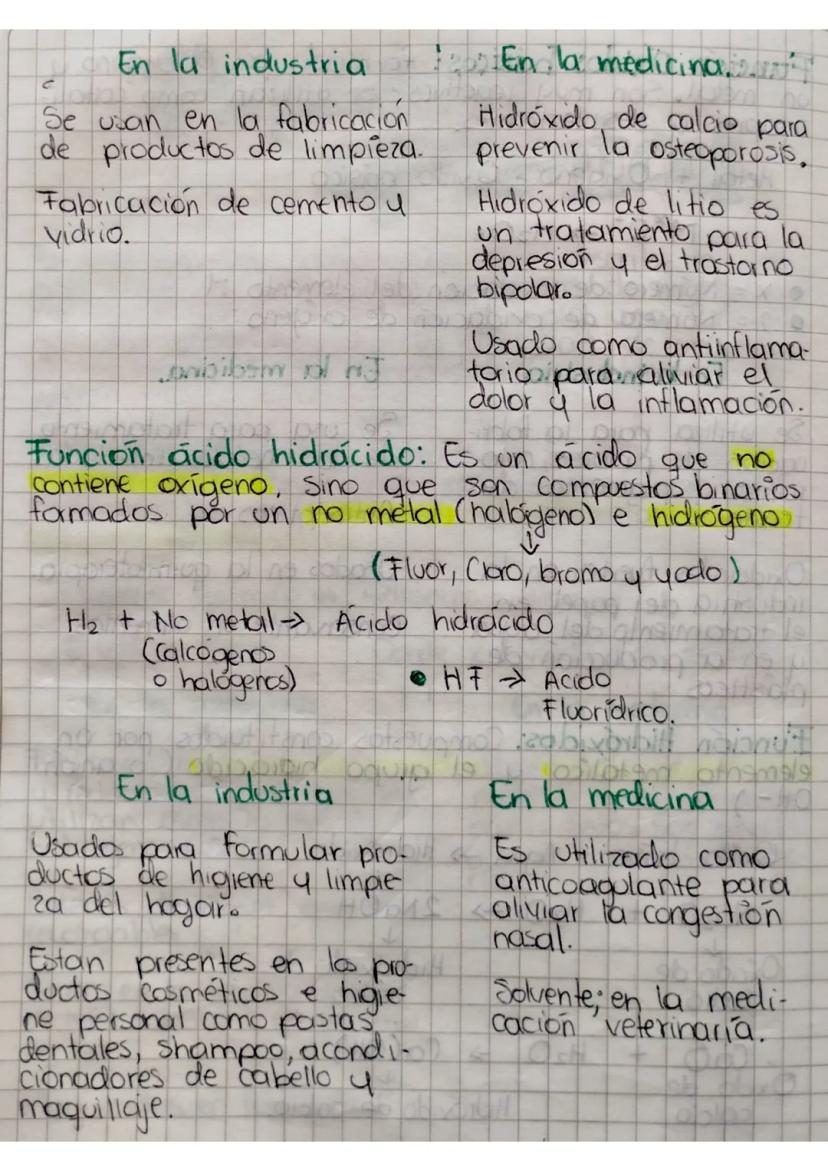 En la industria
Se usan en la fabricación
de productos de limpieza.
Fabricación de cemento y
vidrio.
En la medicina.
Hidróxido de calcio para
prevenir la osteoporosis.
Hidróxido de litio es
un tratamiento para la
depresión y el trastorno
bipolar.
Usado como antiinflama-
torio para aliviar el
dolor y la inflamación.
Función ácido hidrácido: Es un ácido que no
contiene oxígeno, sino que son compuestos binarios
formados por un no metal (halógeno) e hidrógeno
↓
(Fluor, Cloro, bromo y yodo)
H₂ + No metal → Ácido hidrácido
(Calcógenos
o halógenos)
• HF → Ácido
Fluorídrico.
En la industria
Usados para formular pro-
ductos de higiene y limpie
za del hogar.
Estan presentes en los pro-
ductos cosméticos e higie-
ne personal como pastas
dentales, shampoo, acondi-
cionadores de cabello y
maquillaje.
En la medicina
Es utilizado como
anticoagulante para
aliviar la congestión
nasal.
Solvente; en la medi-
cación veterinaria.